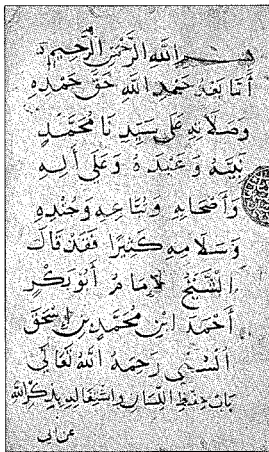 بسم الله الرحمن الرحيم
أما بعد حمد الله حق حمده
وصلاته على سيدنا محمد
نبيه وعبده وعلى آله
وأصحابه وتباعه وجنده
وسلامه كثيرا فقد قال
الشيخ الإمام أبو بكر
أحمد ابن محمد بن إسحق
السني رحمه الله تعالى
باب حفظ اللسان واشتغاله بذكر الله
عن أبي